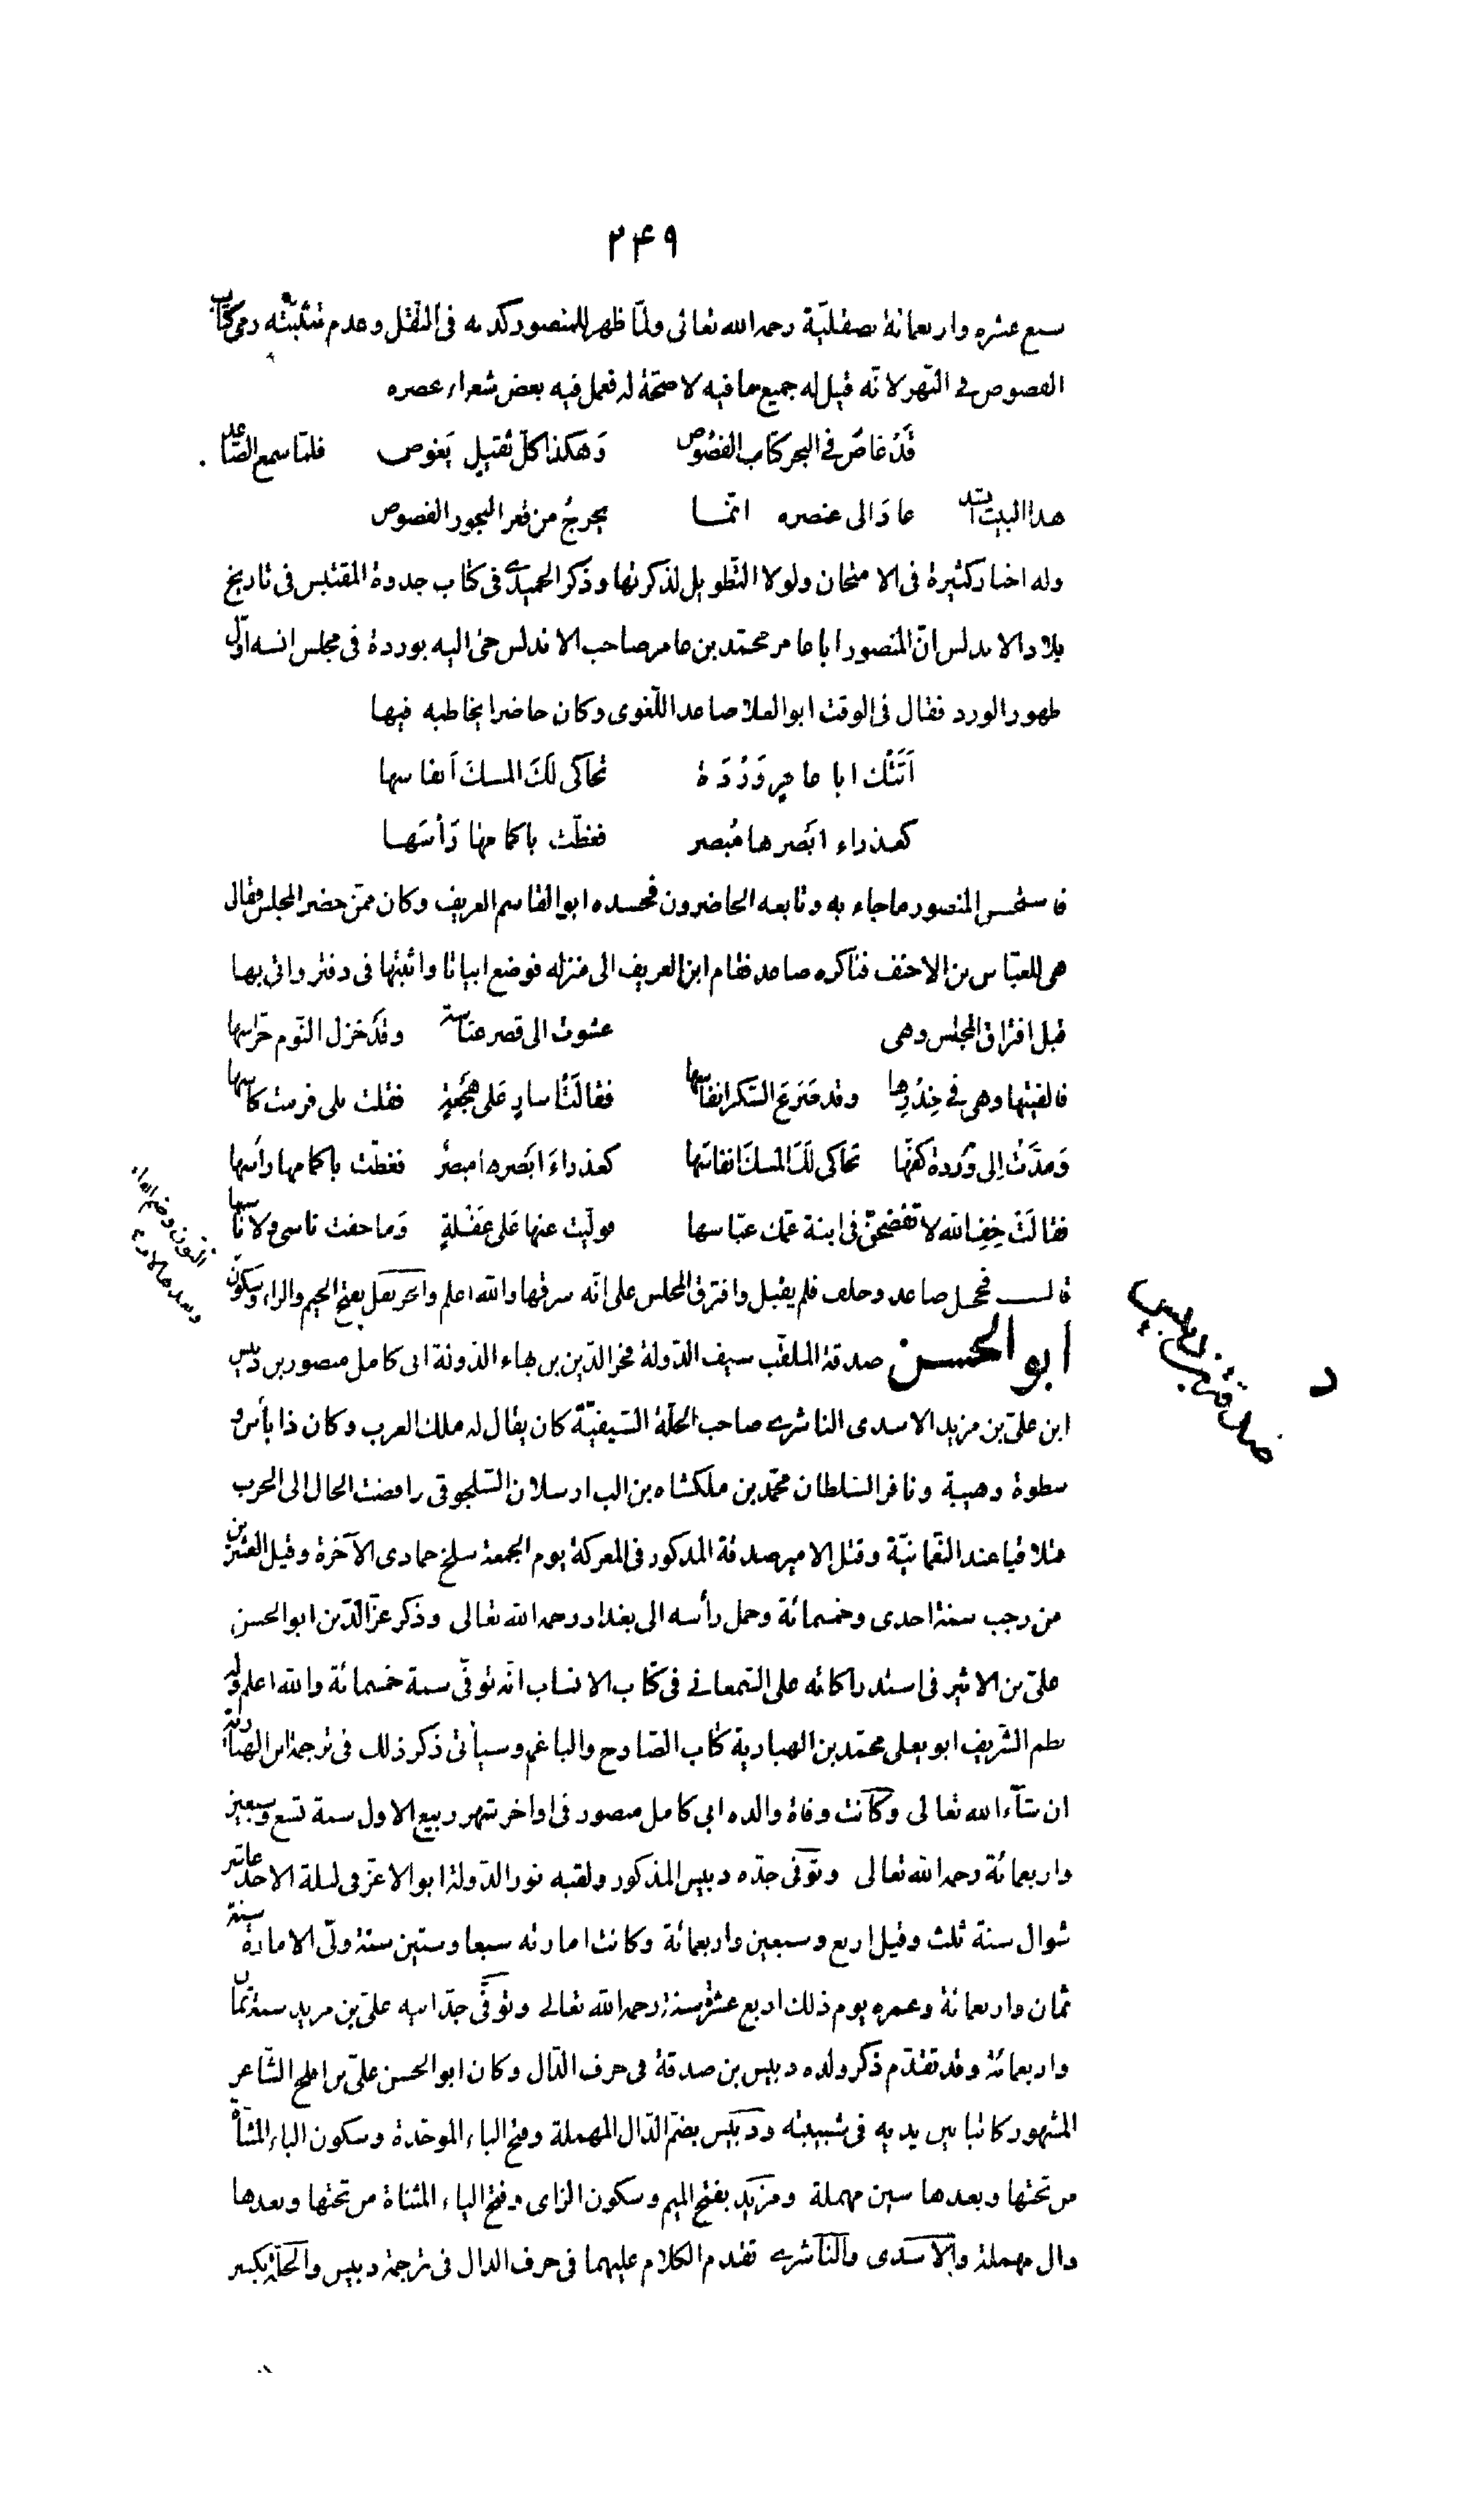 ٢۴٩
سبع عشره واربعمائة بصقلّية رحمه الله تعالى ولمّا ظهر للمنصور كذبه فى النّقل وعدم تثبّته رمى كتاب
الفصوص فى النّهر لانّه قيل له جميع ما فيه لا صحّة له فعمل فيه بعض شعراء عصره
قَد غاصَ فى البحر كتاب الفصُوص وَهكذا كلّ ثقيلٍ يَغوص فلمّا سمع الصّاعد
هذا البيت انشد عادَ الى عنصره انّما يخرجُ من قعر البحور الفصوص
وله اخبار كثيرة فى الامتحان ولولا التّطويل لذكرتها وذكر الحميدى فى كتاب جذوة المقتبس فى تاريخ
بلاد الاندلس انّ المنصور ابا عامر محمّد بن عامر صاحب الاندلس جئ اليه بوردة فى مجلس انسه اوّل
ظهور الورد فقال فى الوقت ابو العلا صاعد اللّغوى وكان حاضرا يخاطبه فيها
اَتَتْك ابا عامرٍ وَرْدَة تحاكى لَكَ المسكَ اَنفاسها
كعذراء ابَصرها مُبصر فغطّت باكمامها رَأسَها
فاستحسن المنصور ما جاء به وتابعه الحاضرون فحسده ابو القاسم العريف وكان ممّن حضر المجلس فقال
هى للعبّاس بن الاحنف فناكره صاعد فقام ابن العريف الى منزله فوضع ابياتا واثبتها فى دفتر واتى بها
قبل افتراق المجلس وهى عشوت الى قصر عبّاسة وقد خزل النّوم حرّاسها
فالفيتها وهى فى خِدْرِها وقد صَرَعَ السّكر انفاسها فقالَتْ اسارٍ عَلى هَجْعَةٍ فقلت بلى فرمت كاسها
وَمدَّتْ اِلى وَردة كفّها تحاكى لَكَ المسكَ انفاسَها كعذراءَ ابَصرها مبصرٌ فغطّت باكمامها رأسَها
فقالَتْ خِفِ الله لا تفضحنّ فى ابنة عمّك عبّاسها فولّيت عنها عَلى غفلةٍ وَما خفت ناسى ولا ناسها
قال فخجل صاعد وحلف فلم يقبل وافترق المجلس على انّه سرقها والله اعلم والجرنفل بفتح الجيم والراء وسكون
النون وضم الفاء
وبعدها لام
أبو الحسن صدقة الملقّب سيف الدّولة فخر الدّين بن بهاء الدّولة ابى كامل منصور بن دبيس
صدقة بن دبيس
د
ابن علىّ بن مزيد الاسدى الناشرى صاحب الحلّة السّيفيّة كان يقال له ملك العرب وكان ذا بأس و
سطوة وهيبة ونافر السّلطان محمّد بن ملكشاه بن الب ارسلان السّلجوقى وافضت الحال الى الحرب
فتلاقيا عند النّعمانيّة وقتل الامير صدقة المذكور فى المعركة يوم الجمعة سلخ جمادى الآخرة وقيل العشرين
من رجب سنة احدى وخمسمائة وحمل رأسه الى بغداد رحمه الله تعالى وذكر عزّ الدّين ابو الحسن
علىّ بن الاثير فى استدراكاته على السّمعانى فى كتاب الانساب انّه توفّى سنة خمسمائة والله اعلم وله
نظم الشّريف ابو يعلى محمّد بن الهبارية كتاب الصّادح والباغم وسيأتى ذكر ذلك فى ترجمة ابن الهبارية
ان شآء الله تعالى وكانت وفاة والده ابى كامل منصور فى اواخر شهر ربيع الاول سنة تسع وسبعين
واربعمائة رحمه الله تعالى وتوفى جدّه دبيس المذكور ولقبه نور الدّولة ابو الاعزّ فى ليلة الاحد عاشر
شوال سنة ثلث وقيل اربع وسبعين واربعمائة وكانت امارته سبعا وستين سنة ولّى الامارة سنة
ثمان واربعمائة وعمره يوم ذلك اربع عشرة سنة رحمه الله تعالى وتوفّى جدّ ابيه علىّ بن مزيد سنة ثمان
واربعمائة وقد تقدّم ذكر ولده دبيس بن صدقة فى حرف الدّال وكان ابو الحسن علىّ بن افلح الشّاعر
المشهور كاتبا بين يديه فى شبيبته ودبيس بضمّ الدّال المهملة وفتح الباء الموحّدة وسكون الياء المثنّاة
من تحتها وبعدها سين مهملة ومزيد بفتح الميم وسكون الزاى وفتح الياء المثناة من تحتها وبعدها
دال مهملة والاسدى والناشرى تقدم الكلام عليهما فى حرف الدال فى ترجمة دبيس والحلّة بكسر